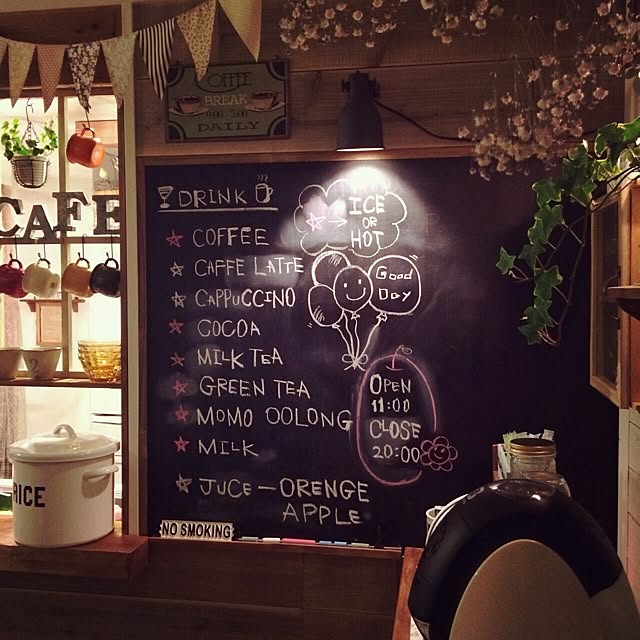 COFFEE
BREAK
DAILY
CAFE
DRINK
ICE
OR
HOT
COFFEE
CAFFE LATTE
CAPPUCCINO
COCOA
MILK TEA
GREEN TEA
MOMO OOLONG
MILK
JUCE — ORENGE
APPLE
Good
Day
OPEN
11:00
CLOSE
20:00
NO SMOKING
RICE